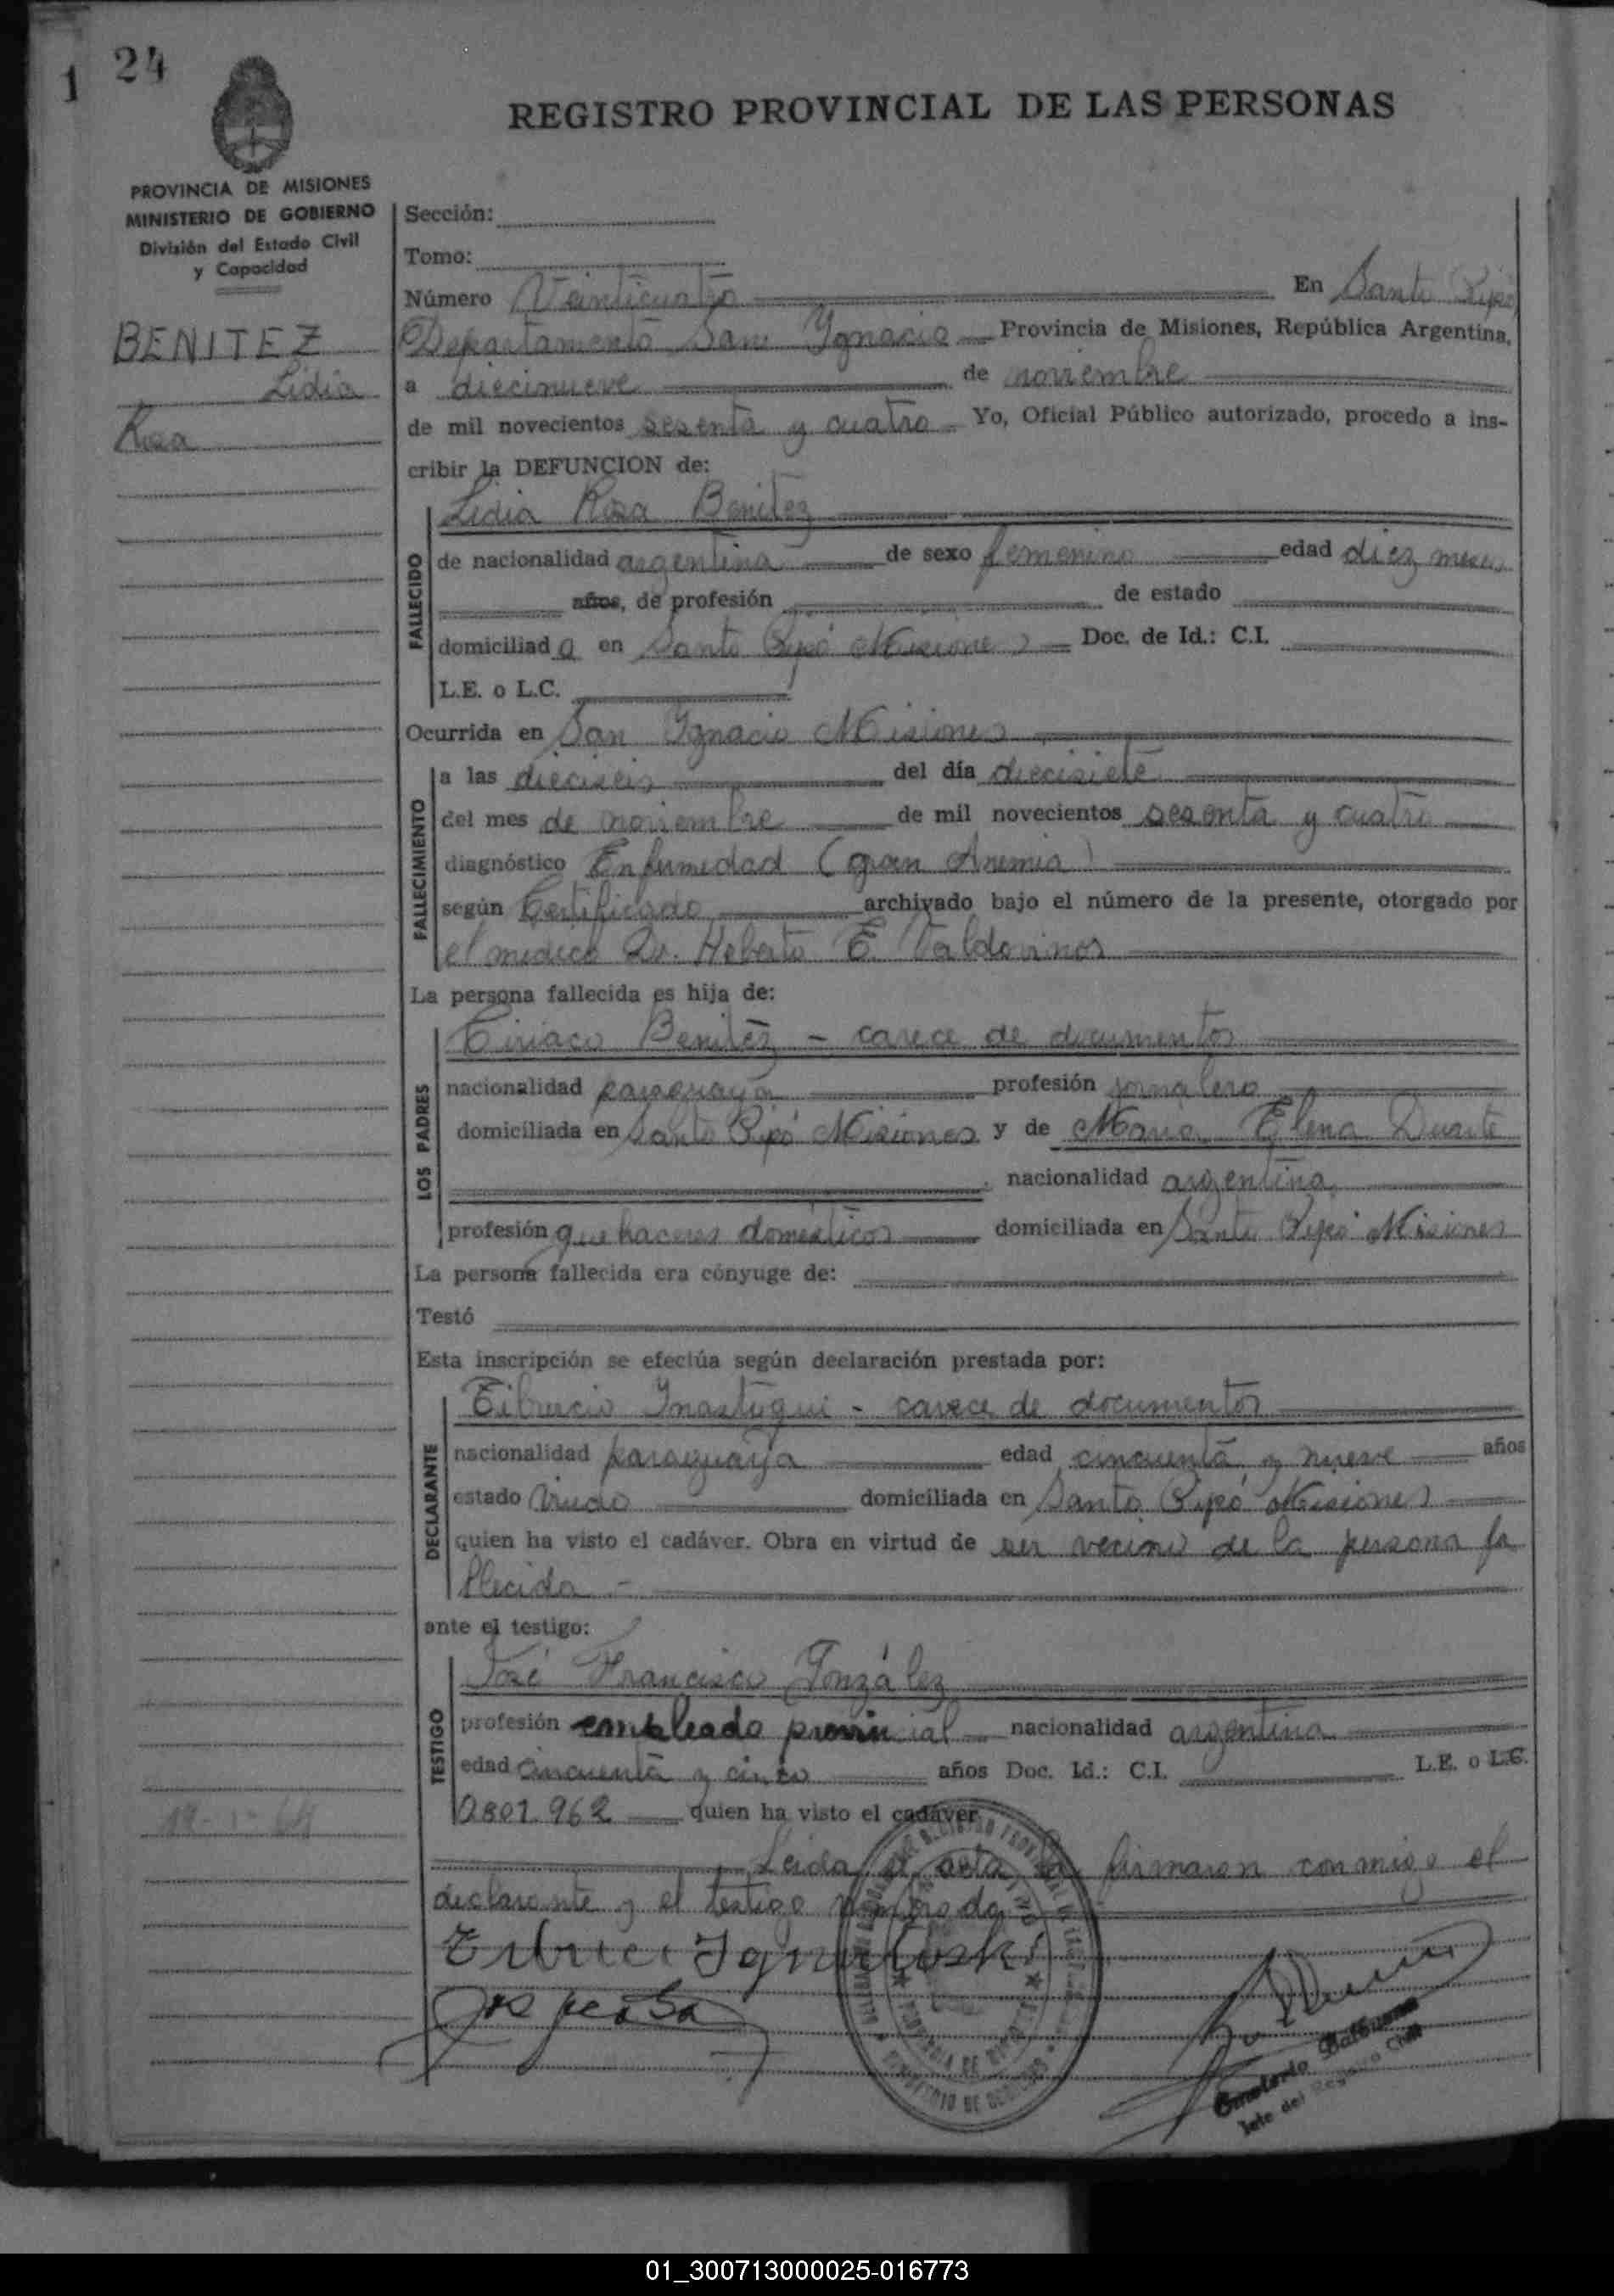 24
1
REGISTRO PROVINCIAL DE LAS PERSONAS
PROVINCIA DE MISIONES
MINISTERIO DE GOBIERNO
División del Estado Civil
y Capacidad
BENITEZ
Lidia
Rosa
Sección:
Tomo:
Número Veinticuatro En Santo Pipó
Departamento San Ygnacio Provincia de Misiones, República Argentina,
a diecinueve de noviembre
de mil novecientos sesenta y cuatro Yo, Oficial Público autorizado, procedo a ins-
cribir la DEFUNCION de:
FALLECIDO
Lidia Rosa Benitez
de nacionalidad argentina de sexo femenino edad diez meses
años, de profesión de estado
domiciliad a en Santo Pipó Misiones Doc. de Id.: C.I.
L.E. o L.C.
Ocurrida en San Ygnacio Misiones
FALLECIMIENTO
a las dieciseis del día diecisiete
del mes de noviembre de mil novecientos sesenta y cuatro
diagnóstico Enfermedad (gran Anemia)
según Certificado archivado bajo el número de la presente, otorgado por
el medico Dr. Heberto E. Valdovinos
La persona fallecida es hija de:
LOS PADRES
Ciriaco Benitez - carece de documentos
nacionalidad paraguaya profesión jornalero
domiciliada en Santo Pipó Misiones y de Maria Elena Duarte
nacionalidad argentina
profesión quehaceres domesticos domiciliada en Santo Pipó Misiones
La persona fallecida era cónyuge de:
Testó
Esta inscripción se efectúa según declaración prestada por:
DECLARANTE
Tiburcio Ynastugui - carece de documentos
nacionalidad paraguaya edad cincuenta y nueve años
estado viudo domiciliada en Santo Pipó Misiones
quien ha visto el cadáver. Obra en virtud de ser vecino de la persona fa
llecida.-
ante el testigo:
TESTIGO
José Francisco González
profesión empleado provincial nacionalidad argentina
edad cincuenta y cinco años Doc. Id.: C.I. L.E. o L.C.
0801.962 quien ha visto el cadáver.
Leida el acta la firmaron conmigo el
declarante y el testigo nombrado
Jefe del Registro Civil
01_300713000025-016773